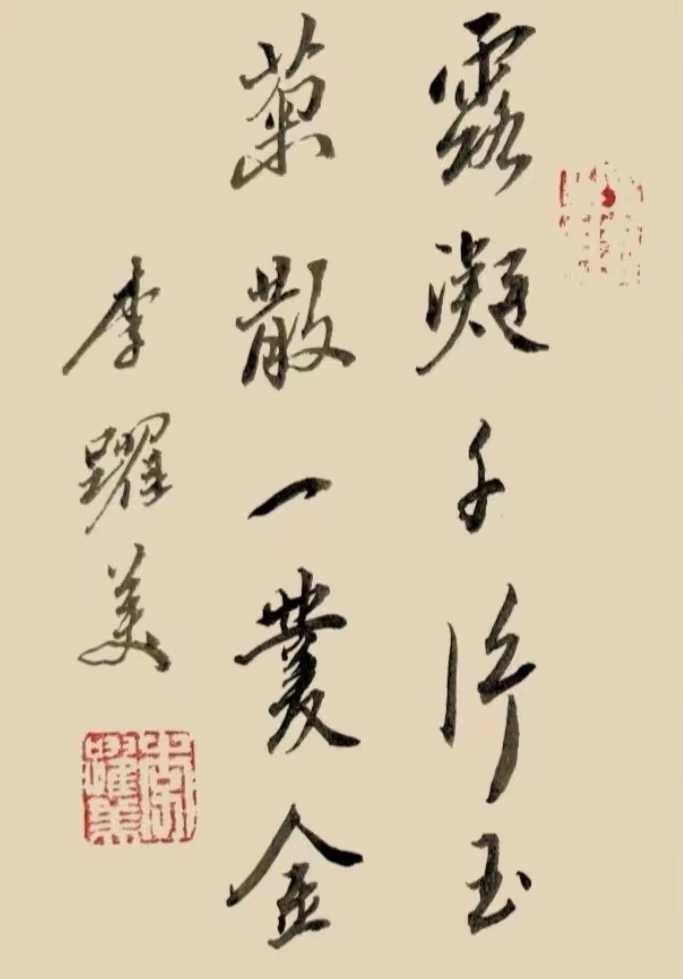 露凝千片玉
菊散一叢金
李躍美
李躍美